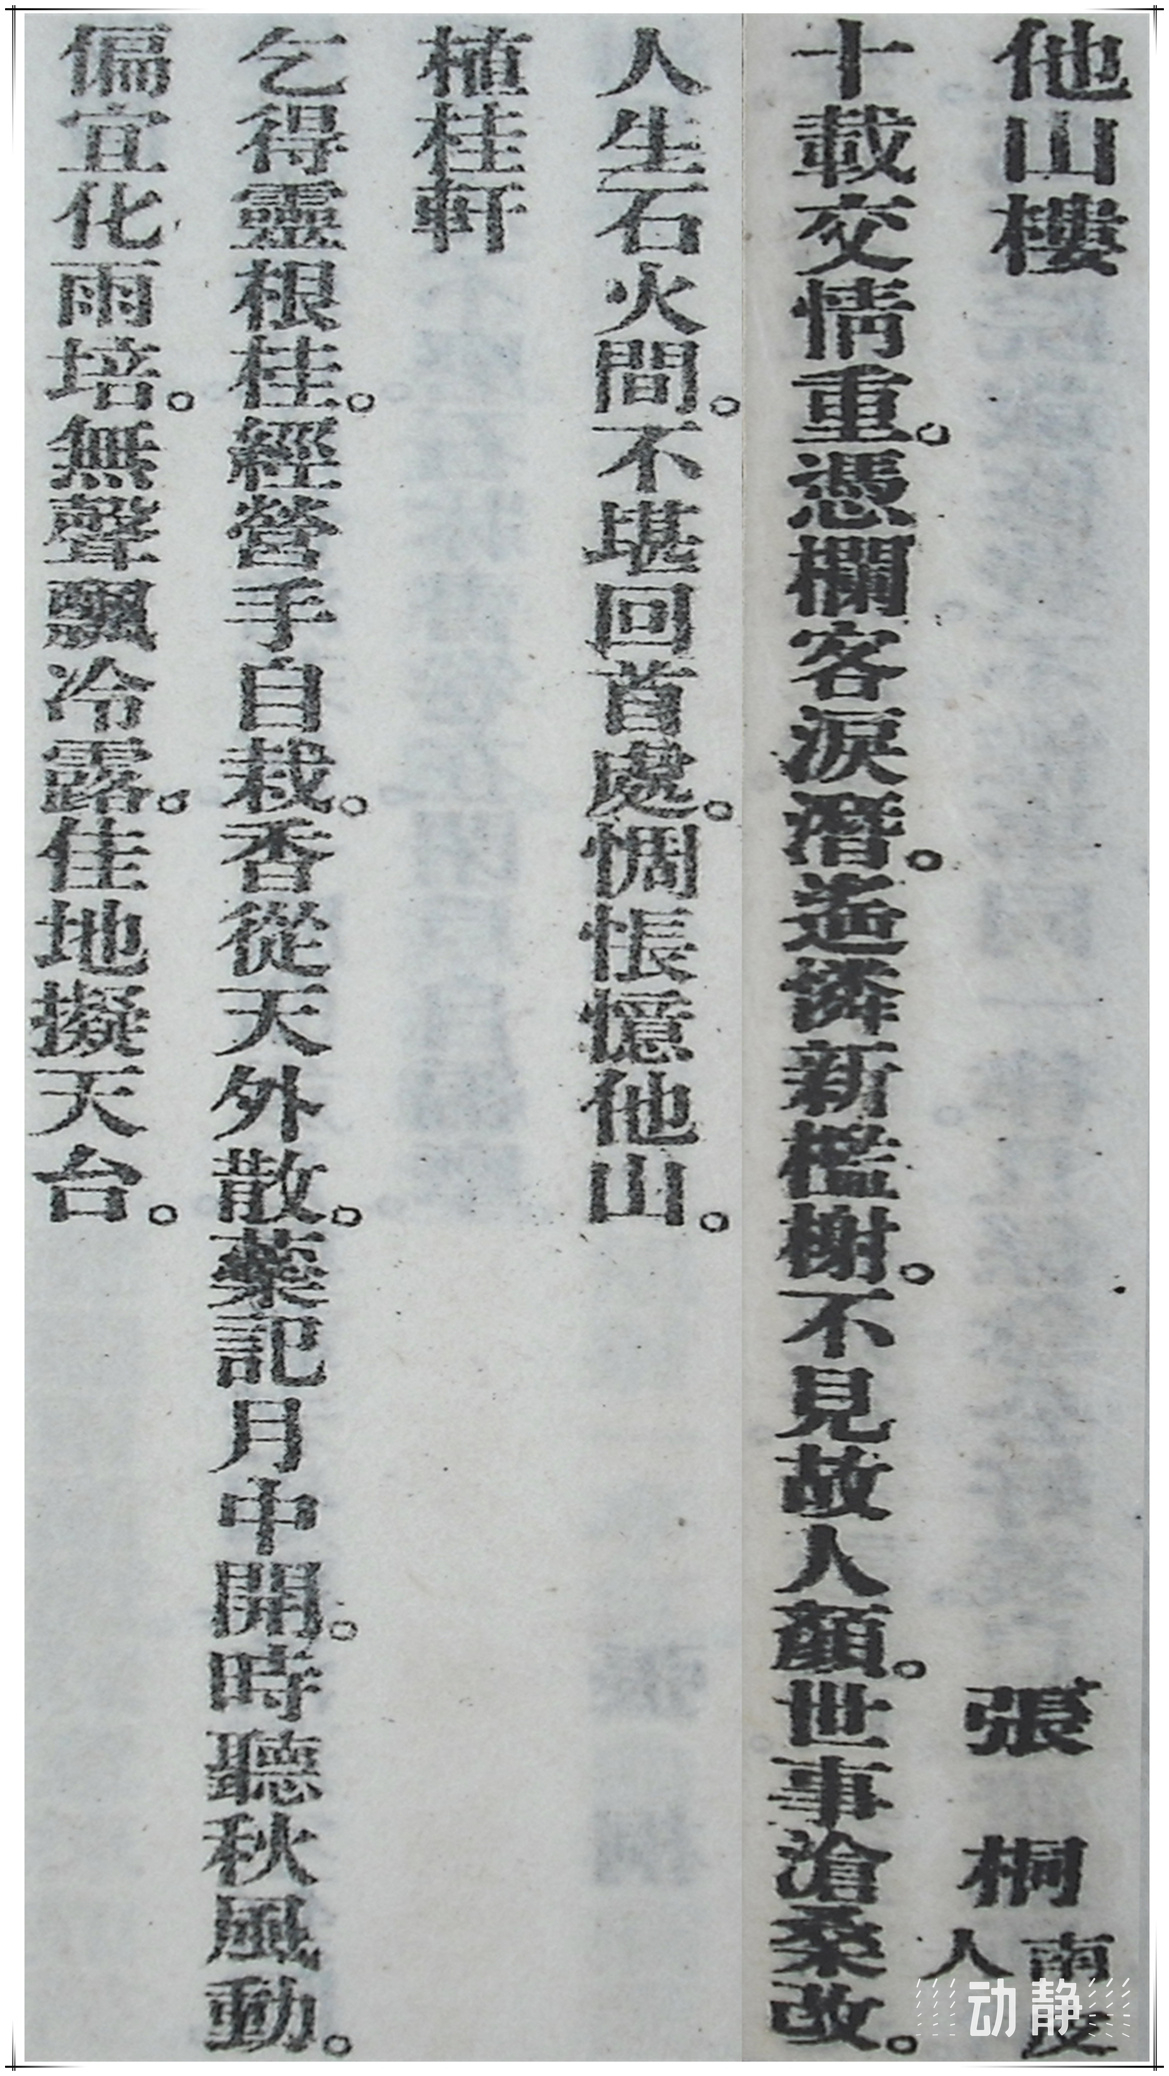 他山樓 張桐 南皮人
十載交情重。憑欄客淚潛。遙憐新檻榭。不見故人顏。世事滄桑改。
人生石火間。不堪回首處。惆悵憶他山。
植桂軒
乞得靈根桂。經營手自栽。香從天外散。藥記月中開。時聽秋風動。
偏宜化雨培。無聲飄冷露。佳地擬天台。
动静